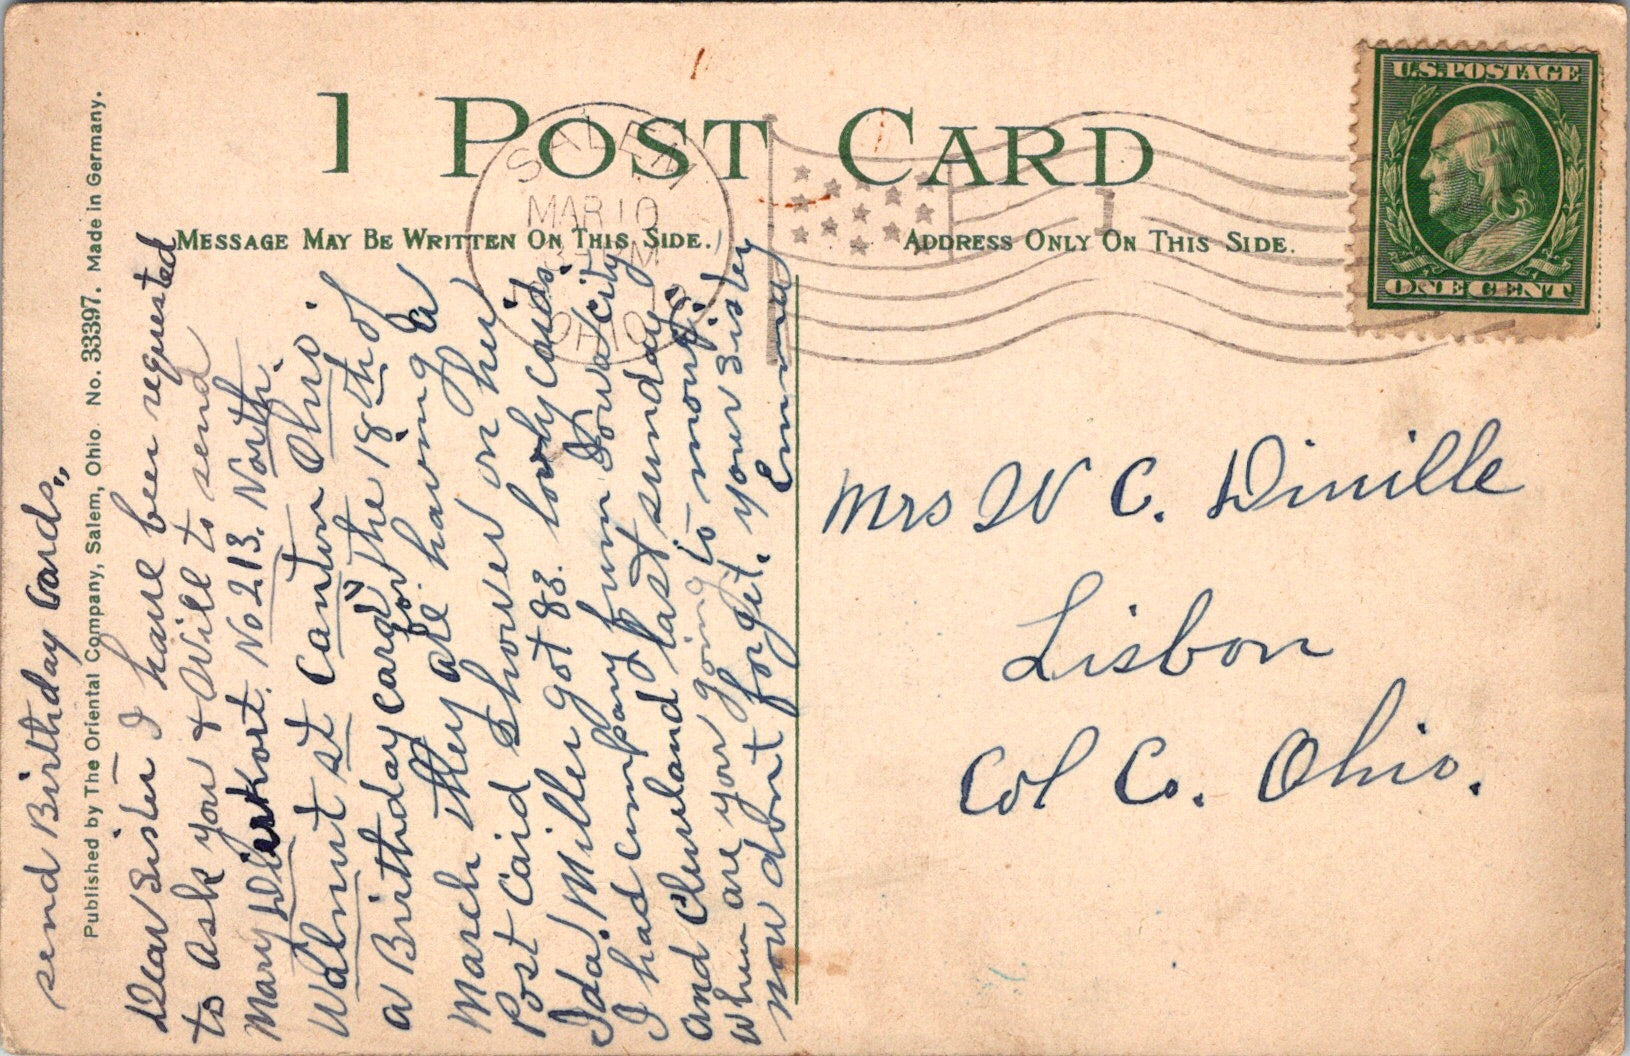 1 POST CARD
MESSAGE MAY BE WRITTEN ON THIS SIDE.
ADDRESS ONLY ON THIS SIDE.
U.S. POSTAGE
ONE CENT
SALEM
MAR 10
OHIO
1
Published by The Oriental Company, Salem, Ohio. No. 33397. Made in Germany.
send Birthday Cards,,
Dear Sister I have been requested
to Ask you & Will to send
Mary No 213. North.
Walnut st Canton Ohio.
a Birthday card for the 18th of
March they are having a
Post Caid Shower on her
Ida. Miller got 83. lovely Cards.
I had company from Iowa city
and Cleveland last sunday.
when are you going to mong.
now dont forget. your Sister
Emma
Mrs W C. Dinille
Lisbon
Col Co. Ohio.